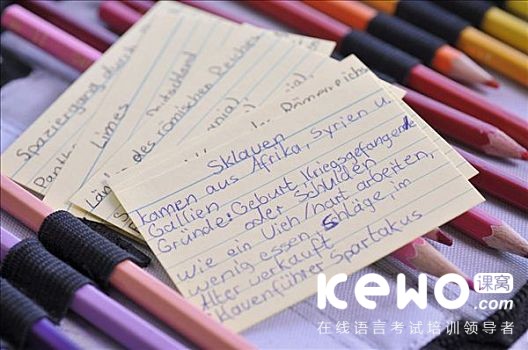 Spaziergang durch
Limes
Deutschland
des römischen Reiches
Sklaven
kamen aus Afrika, Syrien u.
Gallien
Gründe: Geburt, Kriegsgefangene
oder Schulden
Wie ein Vieh/hart arbeiten,
wenig essen, Schläge, im
Alter verkauft
Spartakus
KEWO课窝
.com
在线语言考试培训领导者